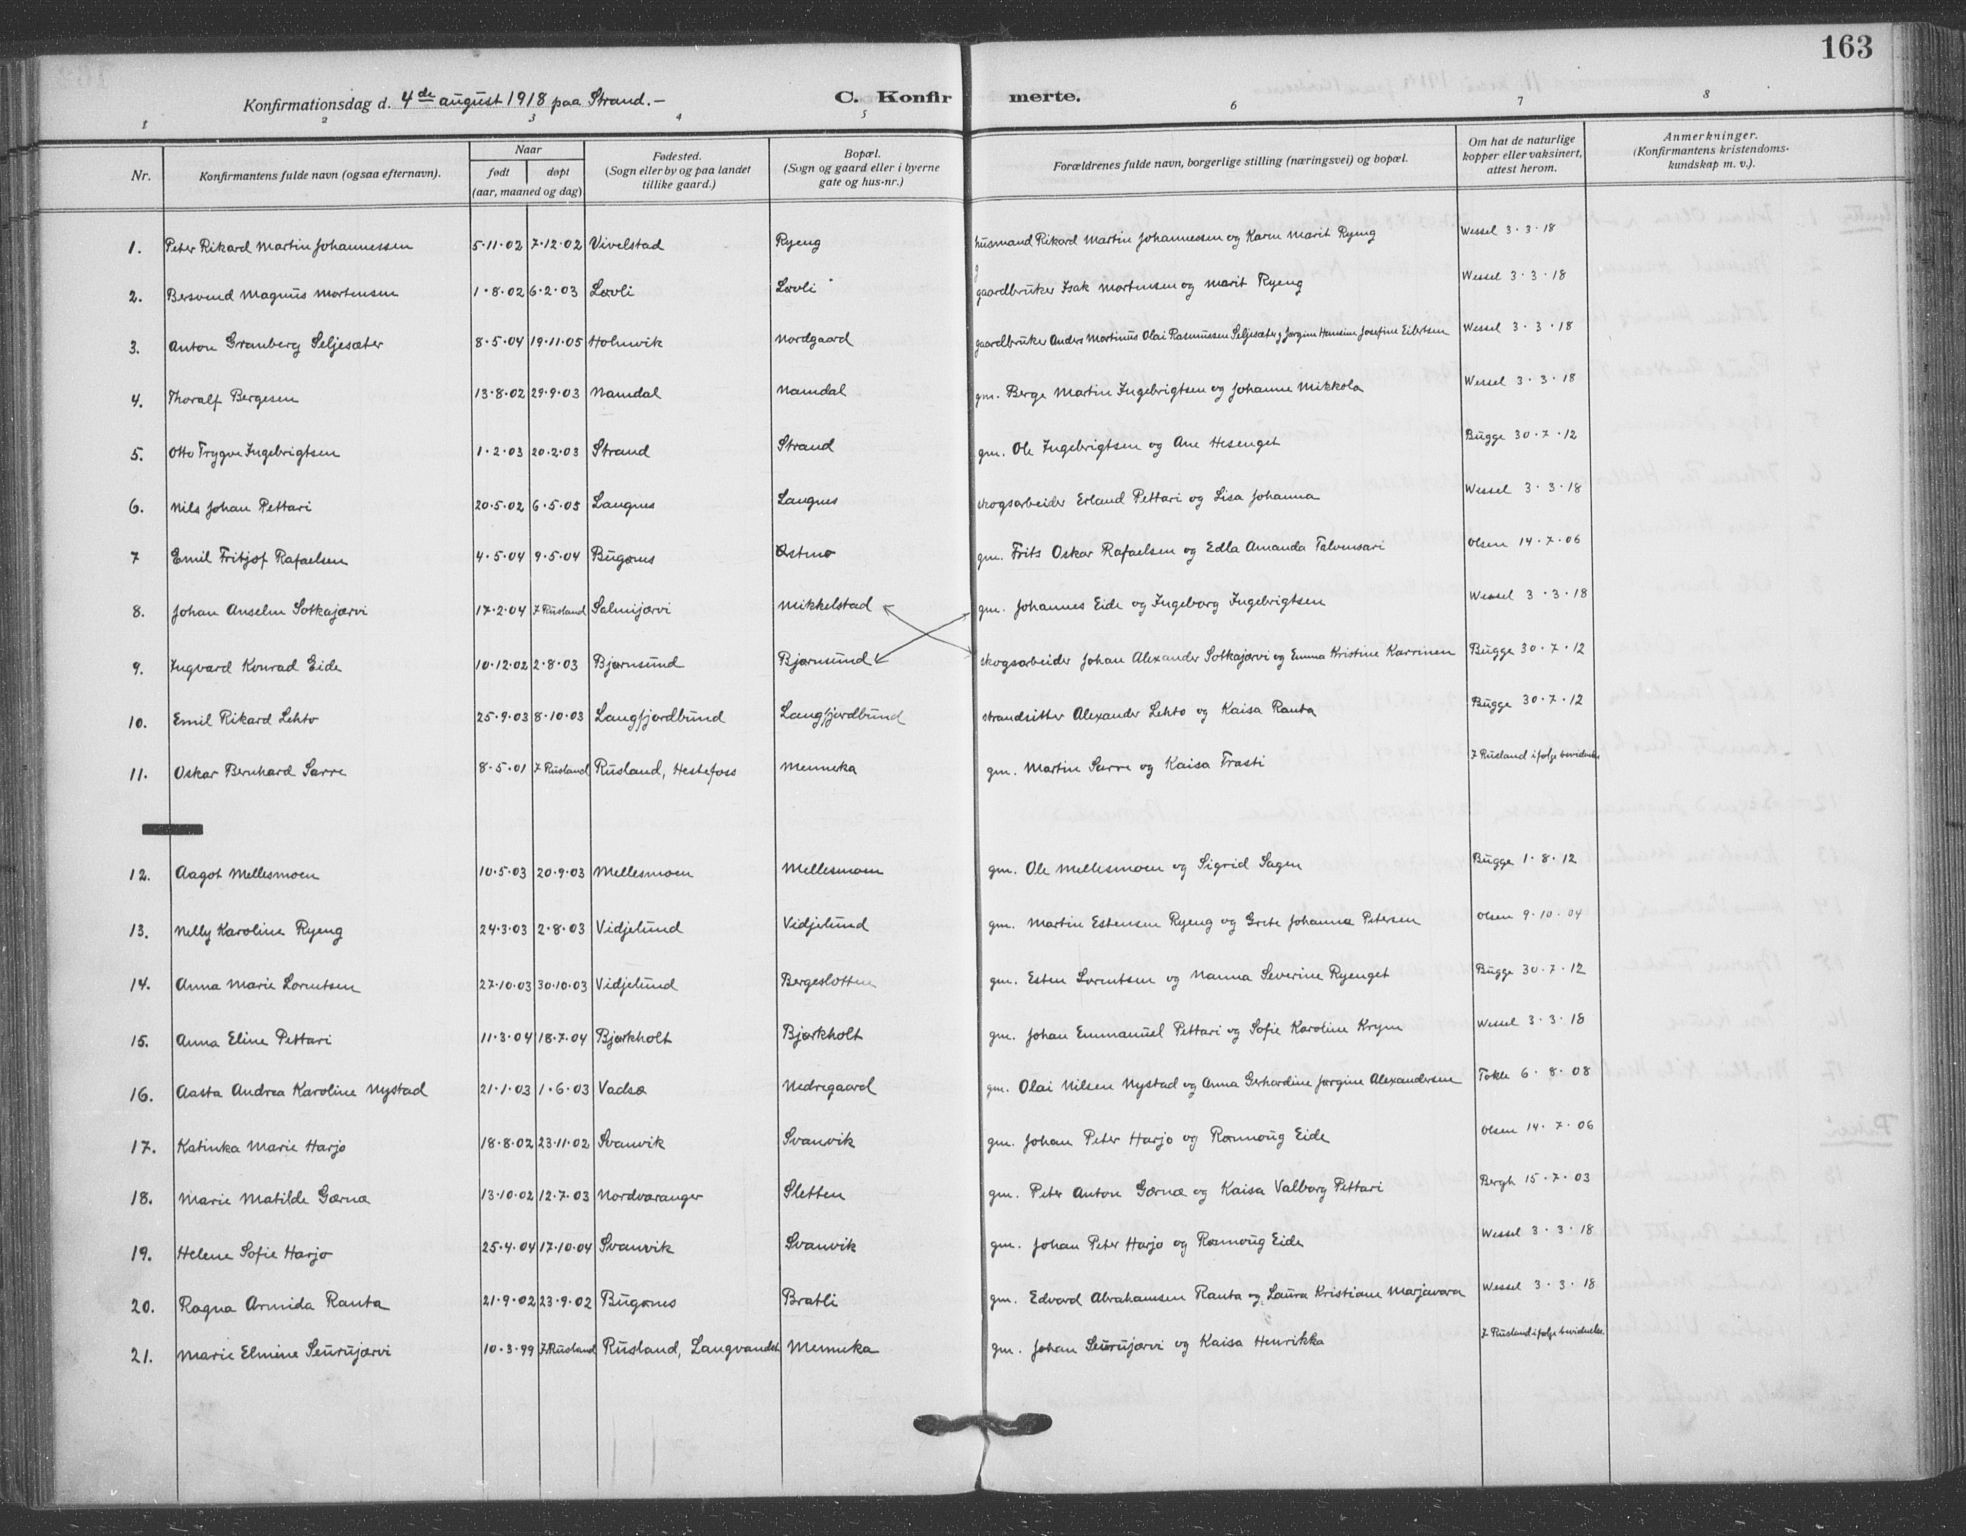 163
Konfirmationsdag d. 4de august 1918 paa Strand.-
C. Konfirmerte.
1 2 3 4 5 6 7 8
Nr. | Konfirmantens fulde navn (ogsaa efternavn). | Naar født døpt (aar, maaned og dag) | Fødested. (Sogn eller by og paa landet tillike gaard.) | Bopæl. (Sogn og gaard eller i byerne gate og hus-nr.) | Forældrenes fulde navn, borgerlige stilling (næringsvei) og bopæl. | Om hat de naturlige kopper eller vaksinert, attest herom. | Anmerkninger. (Konfirmantens kristendomskundskap m. v.).
1. Peter Rikard Martin Johannessen 5.11.02 7.12.02 Vivelstad Ryeng husmand Rikard Martin Johannessen og Karen Marit Ryeng Wessel 3.3.18
2. Bersvend Magnus Mortensen 1.8.02 6.2.03 Løvli Løvli gaardbruker Isak Mortensen og Marit Ryeng Wessel 3.3.18
3. Anton Granberg Seljesæter 8.5.04 19.11.05 Holmvik Nordgaard gaardbruker Anders Martinus Olai Rasmussen Seljesæter og Jørgine Hansine Josefine Eilertsen Wessel 3.3.18
4. Thoralf Bergesen 13.8.02 29.9.03 Namdal Namdal gm. Berge Martin Ingebrigtsen og Johanne Mikkola Wessel 3.3.18
5. Otto Trygve Ingebrigtsen 1.2.03 20.2.03 Strand Strand gm. Ole Ingebrigtsen og Ane Hesenget Bugge 30.7.12
6. Nils Johan Pettari 20.5.02 6.5.03 Langnes Langnes skogsarbeider Erland Pettari og Lisa Johanna Wessel 3.3.18
7 Emil Fritjof Rafaelsen 4.5.04 9.5.04 Bugønes Østmo gm. Frits Oskar Rafaelsen og Edla Amanda Talvensari Olsen 14.7.06
8. Johan Anselm Sotkajærvi 17.2.04 I Rusland Salmijærvi Mikkelstad gm. Johannes Eide og Ingeborg Ingebrigtsen Wessel 3.3.18
9. Ingvard Konrad Eide 10.12.02 2.8.03 Bjørnsund Bjørnsund skogsarbeider Johan Alexander Sotkajærvi og Emma Kristine Karrinen Bugge 30.7.12
10. Emil Rikard Lehto 25.9.03 8.10.03 Langfjordbund Langfjordbund strandsitter Alexander Lehto og Kaisa Ranta Bugge 30.7.12
11. Oskar Bernhard Sarre 8.5.01 I Rusland Rusland, Hestefoss Mennika gm. Martin Sarre og Kaisa Frasti I Rusland ifølge bevidnelse
12. Aagot Mellesmoen 10.5.03 20.9.03 Mellesmoen Mellesmoen gm. Ole Mellesmoen og Sigrid Sagen Bugge 1.8.12
13. Nelly Karoline Ryeng 24.3.03 2.8.03 Vidjelund Vidjelund gm. Martin Estensen Ryeng og Grete Johanna Petersen Olsen 9.10.04
14. Anna Marie Lorentsen 27.10.03 30.10.03 Vidjelund Bergeslotten gm. Esten Lorentsen og Nanna Severine Ryenget Bugge 30.7.12
15. Anna Eline Pettari 11.3.04 18.7.04 Bjørkholt Bjørkholt gm. Johan Emmanuel Pettari og Sofie Karoline Krym Wessel 3.3.18
16. Aasta Andrea Karoline Nystad 21.1.03 1.6.03 Vadsø Nedregaard gm. Olai Nilsen Nystad og Anna Gerhardine Jørgine Alexandersen Tokle 6.8.08
17. Katinka Marie Harjo 18.8.02 23.11.02 Svanvik Svanvik gm. Johan Peter Harjo og Rønnoug Eide Olsen 14.7.06
18. Marie Matilde Gærnæ 13.10.02 12.7.03 Nordvaranger Sletten gm. Peter Anton Gærnæ og Kaisa Valborg Pettari Bergh 15.7.03
19. Helene Sofie Harjo 25.4.04 17.10.04 Svanvik Svanvik gm. Johan Peter Harjo og Rønnoug Eide Wessel 3.3.18
20. Ragna Armida Ranta 21.9.02 23.9.02 Bugønes Bratli gm. Edvard Abrahamsen Ranta og Laura Kristiane Marjavara Wessel 3.3.18
21. Marie Elmine Seurujærvi 10.3.99 I Rusland Rusland, Langvandet Mennika gm. Johan Seurujærvi og Kaisa Henrikka I Rusland ifølge bevidnelse